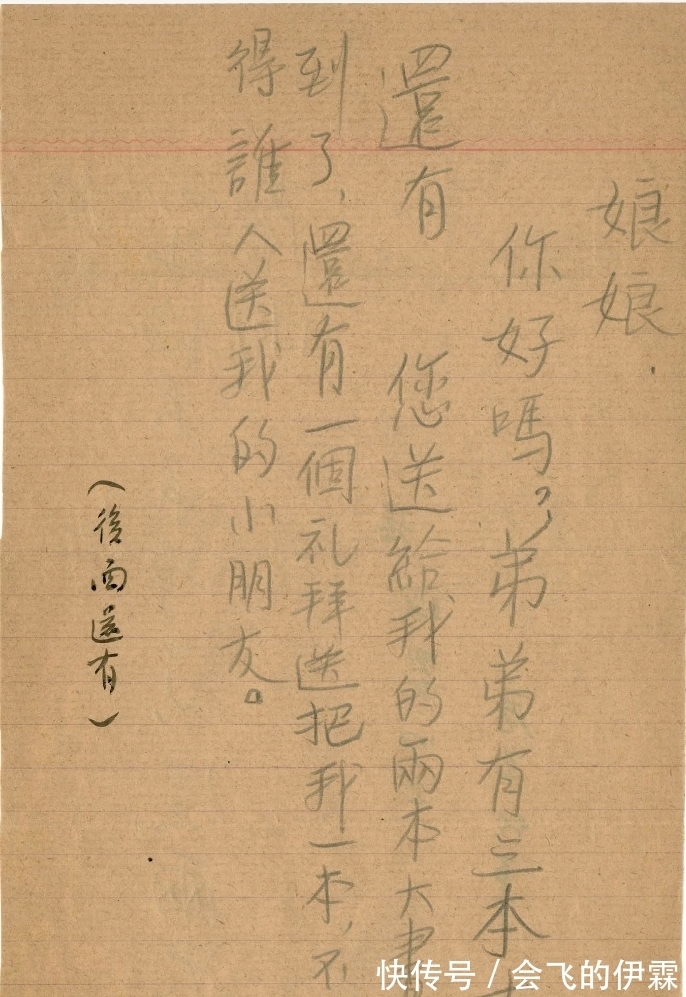 娘娘
你好嗎？弟弟有三本
還有 您送給我的兩本大書
到了，還有一個礼拜送把我一本，不
得誰人送我的小朋友。
（後面還有）
快传号 / 会飞的伊霖